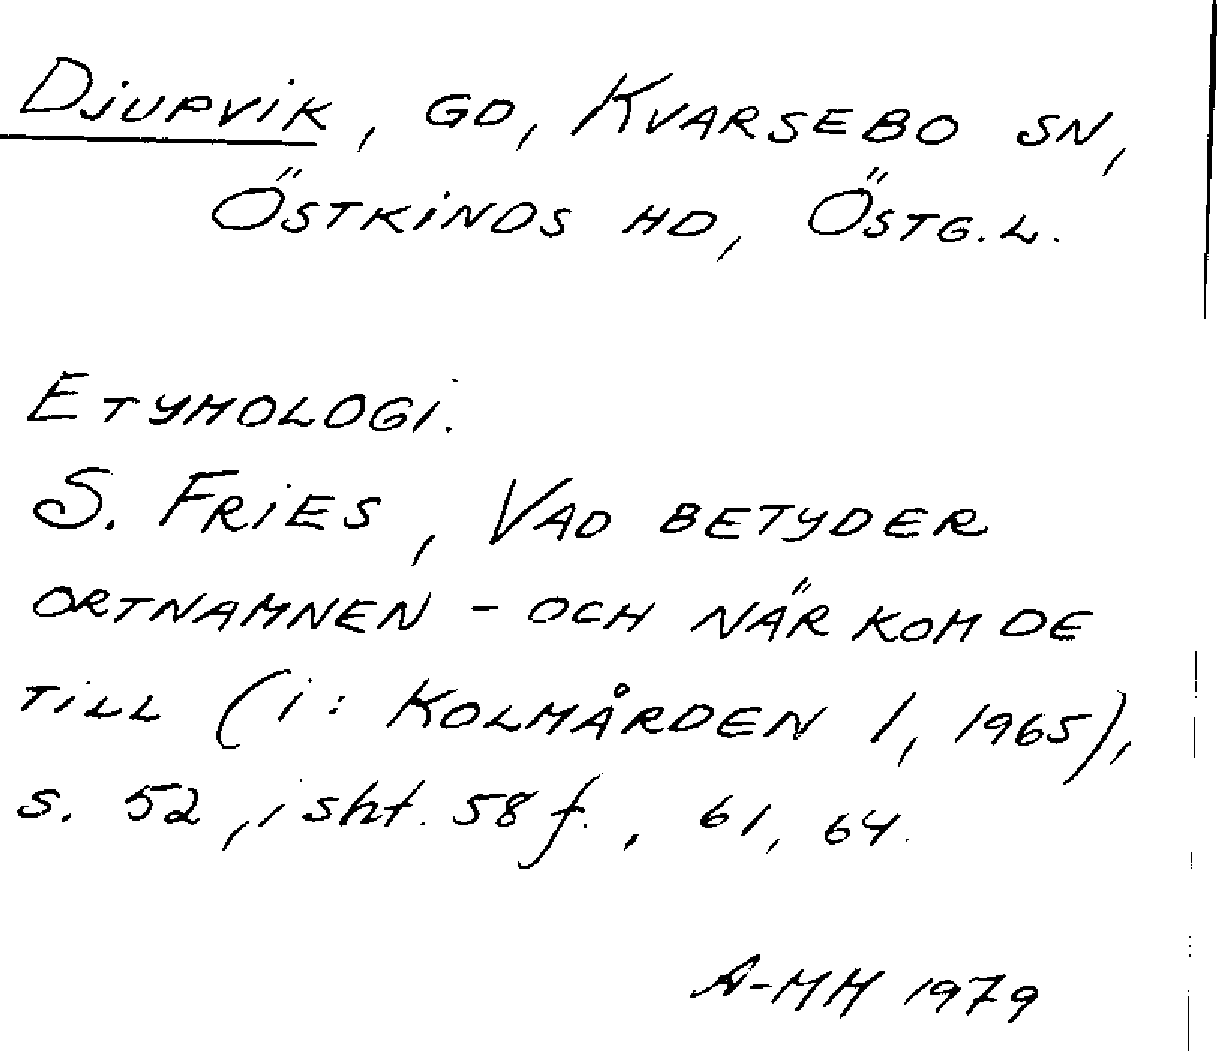 Djupvik, gd, Kvarsebo sn,
Östkinds hd, Östg.l.
Etymologi.
S. Fries, Vad betyder
ortnamnen - och när kom de
till (i: Kolmården 1, 1965),
s. 52, isht. 58 f., 61, 64.
A-MH 1979